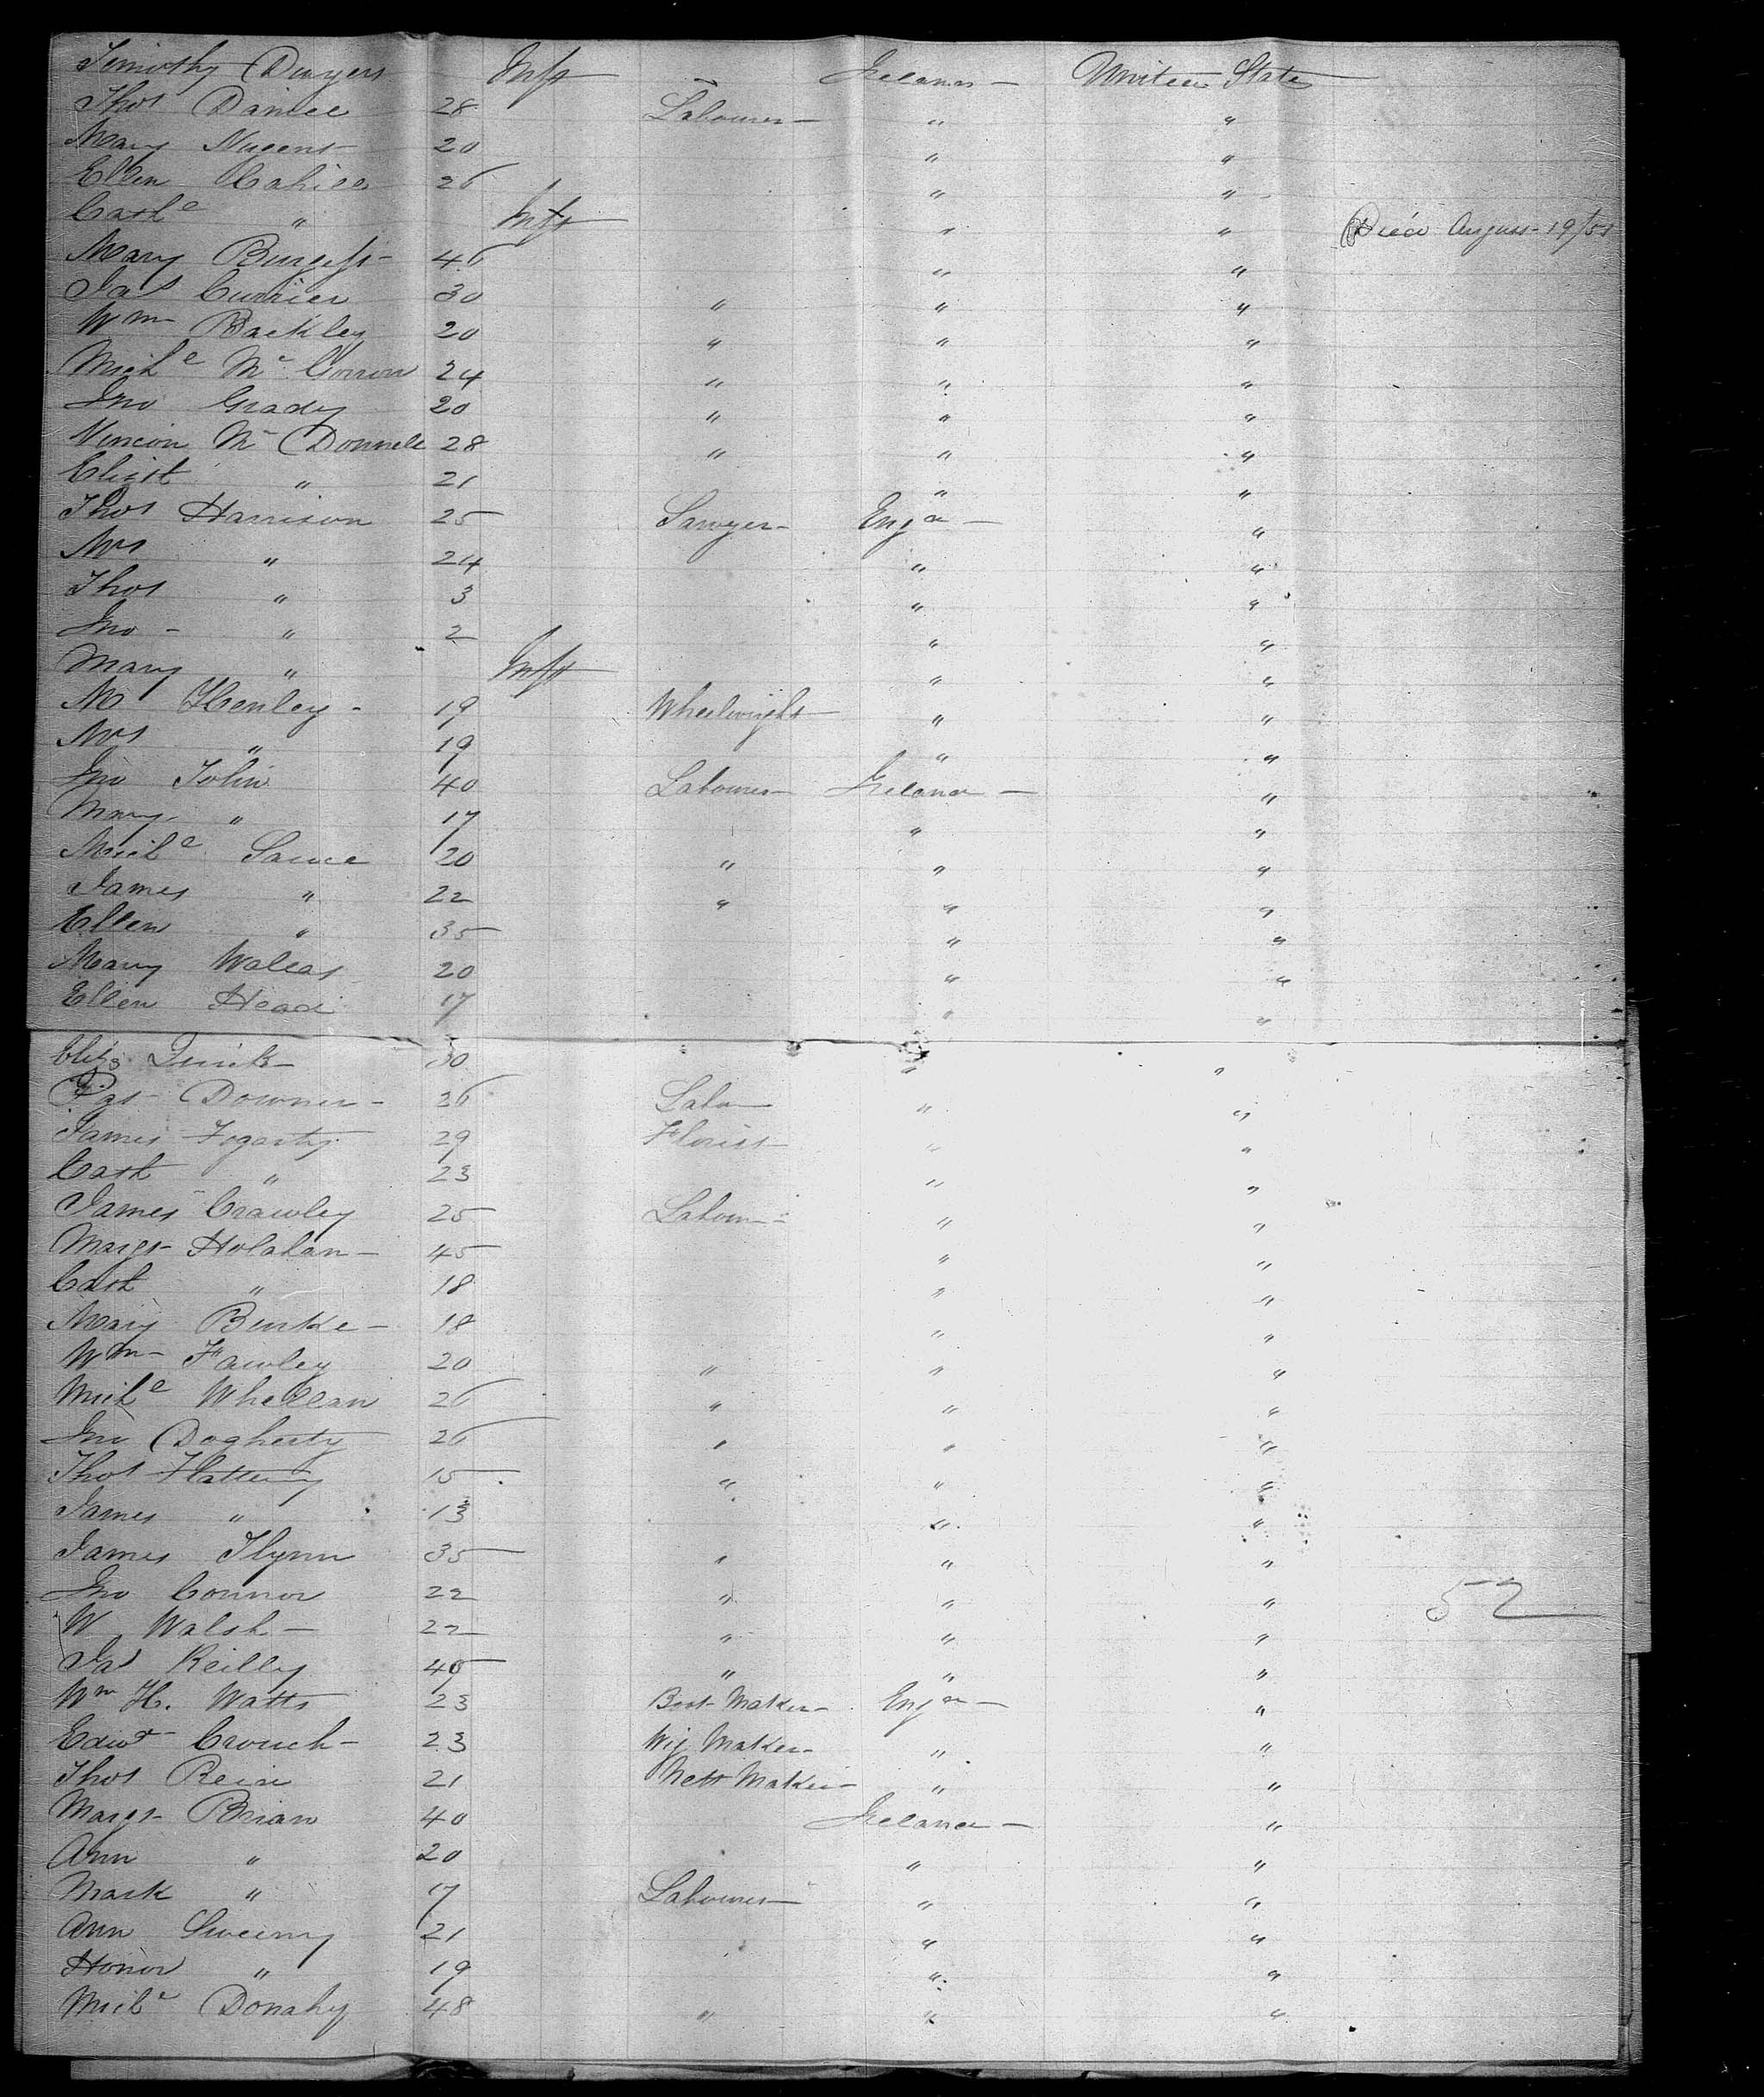 Timothy Dwyers Inft Ireland United States
Thos Daniel 28 Labourer " "
Mary Nugent 20 " "
Ellen Cahill 26 " "
Cathe " Inft " " Died August 19/51
Mary Burgess 46 " "
Jas Currier 30 " " "
Wm Backley 20 " " "
Michl Mc 24 " " "
Jno Grady 20 " " "
Mc Donnell 28 " " "
" 21 " "
Thos Harrison 25 Sawyer Engd "
Mrs " 24 " "
Thos " 3 " "
Jno " 2 " "
Mary " Inft " "
M Henley 19 Wheelwright " "
Mrs " 19 " "
Jno Tobin 40 Labourer Ireland "
Mary " 17 " "
Michl 20 " " "
James " 22 " " "
Ellen " 35 " "
Mary 20 " "
Ellen Head 17 " "
Eliza Quirk 30 " "
Pat Downer 26 Labr " "
James Fogarty 29 Florist " "
Cath " 23 " "
James Crawley 25 Labour " "
Margt Holahan 45 " "
Cath " 18 " "
Mary Burke 18 " "
Wm Fawley 20 " " "
Michl Whellan 26 " " "
Jno Dogherty 26 " " "
Thos Flattery 15 " " "
James " 13 " "
James Flynn 35 " " "
Jno Connor 22 " " " 52
W Walsh 22 " " "
Jas Reilly 45 " " "
Wm H. Watts 23 Boot Maker Engd "
Edwd Crouch 23 Wig Maker " "
Thos 21 Nett Maker " "
Margt Brian 40 Ireland "
Ann " 20 " "
Mark " 17 Labourer " "
Ann Sweeny 21 " "
Honor " 19 " "
Michl Donahy 48 " " "